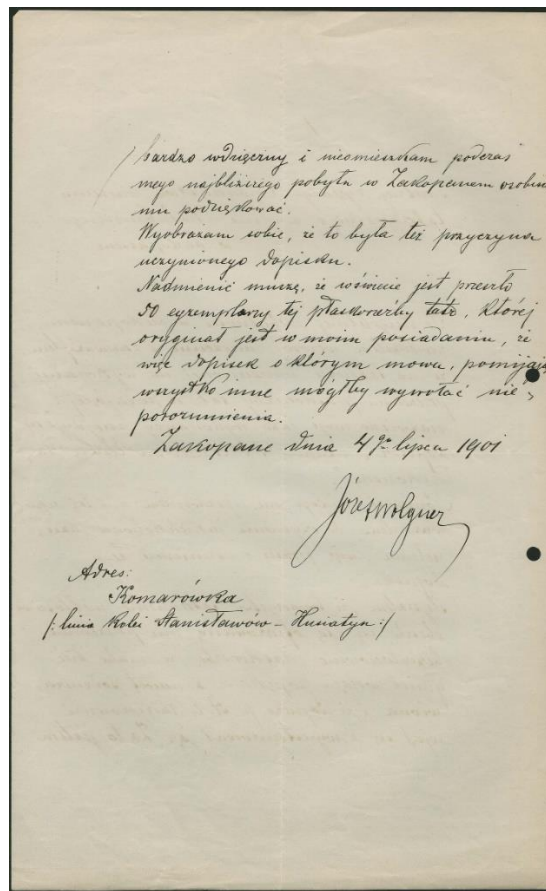 bardzo wdzięczny i nieomieszkam podczas
mego najbliższego pobytu w Zakopanem osobiś
mu podziękować.
Wyobrażam sobie, że to była też przyczyna
uczynionego dopisku.
Nadmienić muszę, że w świecie jest przeszło
50 egzemplarzy tej płaskorzeźby Tatr, której
oryginał jest w moim posiadaniu, że
więc dopisek o którym mowa, pomijając
wszystko inne mógłby wywołać nie-
porozumienia.
Zakopane dnia 4go lipca 1901
Adres:
Komarówka
/: linia kolei Stanisławów - Husiatyn :/